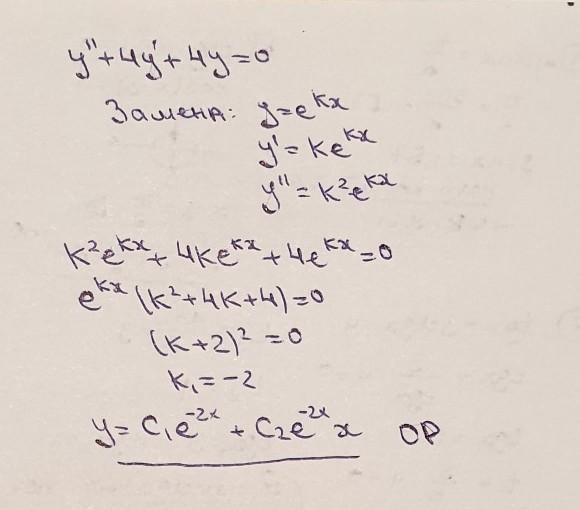 y''+4y'+4y=0
Замена: y=e^{kx}
y'=ke^{kx}
y''=k²e^{kx}
k²e^{kx}+4ke^{kx}+4e^{kx}=0
e^{kx}(k²+4k+4)=0
(k+2)²=0
k₁=-2
y=C₁e^{-2x}+C₂e^{-2x}x ОР